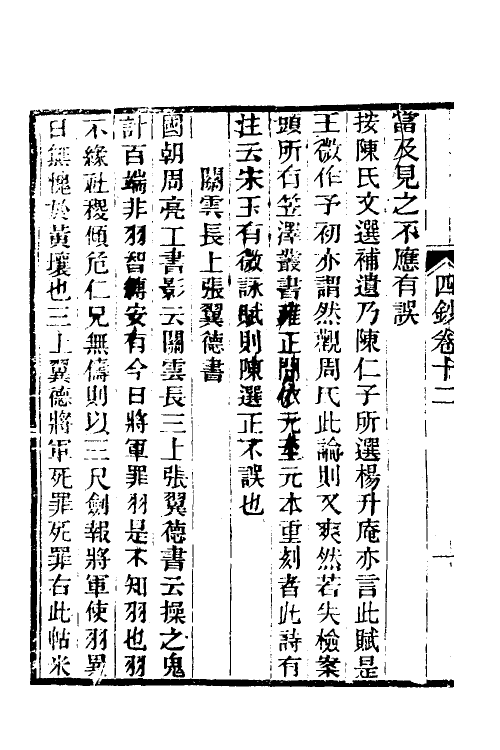 當及見之不應有誤
按陳氏文選補遺乃陳仁子所選楊升庵亦言此賦是
王微作予初亦謂然觀周氏此論則又爽然若失檢案
頭所有笠澤叢書雍正間依元至元本重刻者此詩有
注云宋玉有微詠賦則陳選正不誤也
關雲長上張翼德書
國朝周亮工書影云關雲長三上張翼德書云操之鬼
計百端非羽智縛安有今日將軍罪羽是不知羽也羽
不緣社稷傾危仁兄無儔則以三尺劍報將軍使羽異
日無愧於黃壤也三上翼德將軍死罪死罪右此帖米
四鈔卷十二